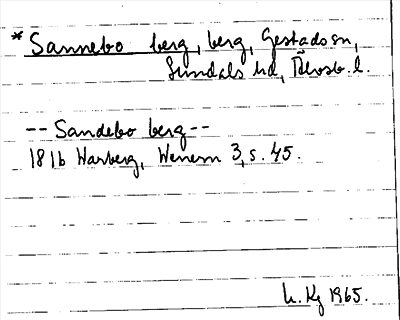 * Sannebo berg, berg, Gestads sn,
Sundals hd, Älvsb. l.
-- Sandebo berg --
1816 Warberg, Wenern 3, s. 45.
1965.